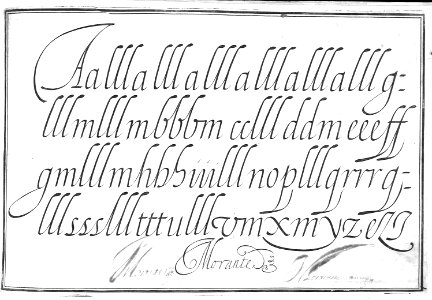 Aalllalllalllalllalllalllg=
lllmlllmbbbmcclllddmeeeff
gmlllmhhhiiilllnoplllgrrrg=
lllsssllltttulllvmxmyze
Morante